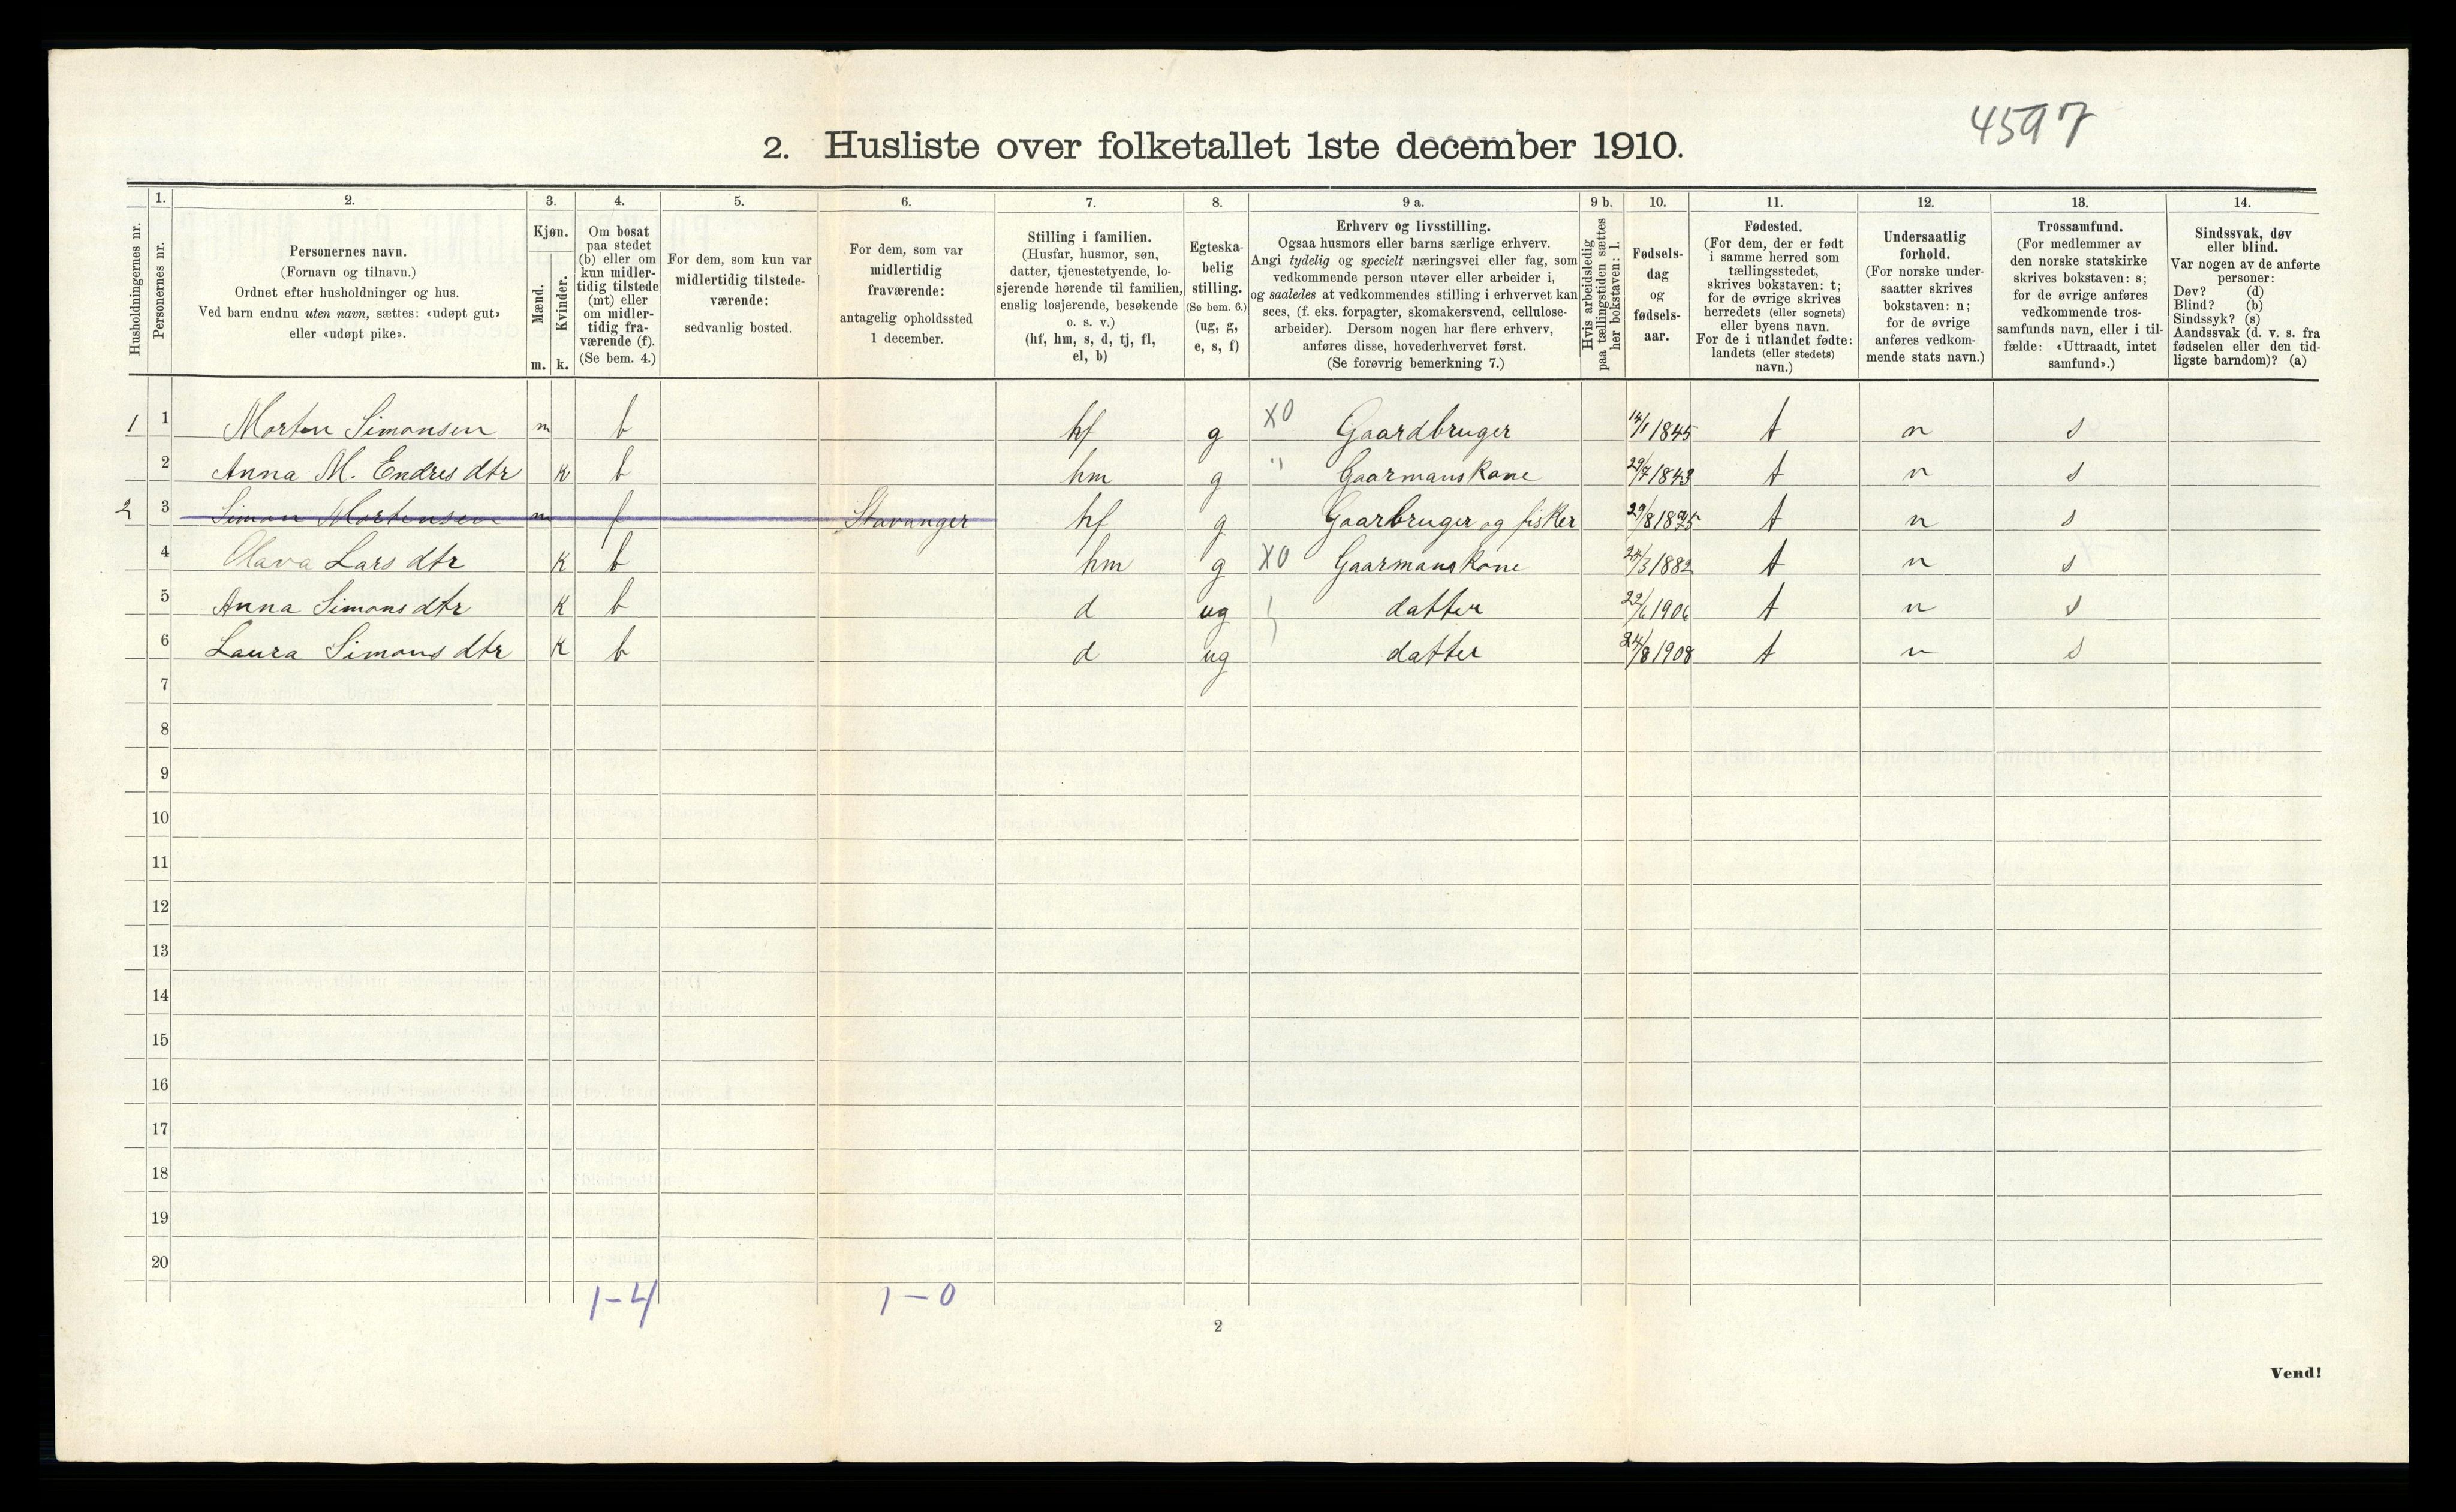 4597
2. Husliste over folketallet 1ste december 1910.
Husholdningernes nr.
1.
Personernes nr.
2.
Personernes navn.
(Fornavn og tilnavn.)
Ordnet efter husholdninger og hus.
Ved barn endnu uten navn, sættes: «udøpt gut»
eller «udøpt pike».
3.
Kjøn.
Mænd.
Kvinder.
m. k.
4.
Om bosat
paa stedet
(b) eller om
kun midler-
tidig tilstede
(mt) eller
om midler-
tidig fra-
værende (f).
(Se bem. 4.)
5.
For dem, som kun var
midlertidig tilstede-
værende:
sedvanlig bosted.
6.
For dem, som var
midlertidig
fraværende:
antagelig opholdssted
1 december.
7.
Stilling i familien.
(Husfar, husmor, søn,
datter, tjenestetyende, lo-
sjerende hørende til familien,
enslig losjerende, besøkende
o. s. v.)
(hf, hm, s, d, tj, fl,
el, b)
8.
Egteska-
belig
stilling.
(Se bem. 6.)
(ug, g,
e, s, f)
9 a.
Erhverv og livsstilling.
Ogsaa husmors eller barns særlige erhverv.
Angi tydelig og specielt næringsvei eller fag, som
vedkommende person utøver eller arbeider i,
og saaledes at vedkommendes stilling i erhvervet kan
sees, (f. eks. forpagter, skomakersvend, cellulose-
arbeider). Dersom nogen har flere erhverv,
anføres disse, hovederhvervet først.
(Se forøvrig bemerkning 7.)
9 b.
Hvis arbeidsledig
paa tællingstiden sættes
her bokstaven: l.
10.
Fødsels-
dag
og
fødsels-
aar.
11.
Fødested.
(For dem, der er født
i samme herred som
tællingsstedet,
skrives bokstaven: t;
for de øvrige skrives
herredets (eller sognets)
eller byens navn.
For de i utlandet fødte:
landets (eller stedets)
navn.)
12.
Undersaatlig
forhold.
(For norske under-
saatter skrives
bokstaven: n;
for de øvrige
anføres vedkom-
mende stats navn.)
13.
Trossamfund.
(For medlemmer av
den norske statskirke
skrives bokstaven: s;
for de øvrige anføres
vedkommende tros-
samfunds navn, eller i til-
fælde: «Uttraadt, intet
samfund».)
14.
Sindssvak, døv
eller blind.
Var nogen av de anførte
personer:
Døv? (d)
Blind? (b)
Sindssyk? (s)
Aandssvak (d. v. s. fra
fødselen eller den tid-
ligste barndom)? (a)
1 1 Morten Simonsen m b hf g X0 Gaardbruger 14/1 1845 t n s
2 Anna M. Endres dtr k b hm g " Gaarmanskone 29/7 1843 t n s
2 3 Simon Mortensen m f Stavanger hf g Gaarbruger og fisker 29/8 1875 t n s
4 Olava Lars dtr k b hm g X0 Gaarmanskone 24/3 1882 t n s
5 Anna Simons dtr k b d ug datter 22/6 1906 t n s
6 Laura Simons dtr k b d ug datter 24/8 1908 t n s
7
8
9
10
11
12
13
14
15
16
17
18
19
20
1-4 1-0
2
Vend!